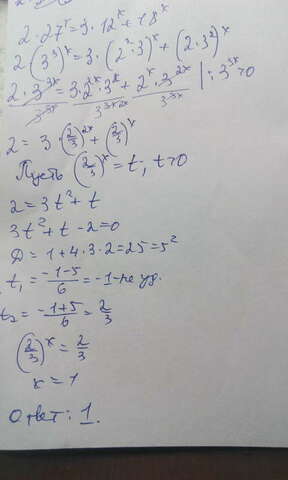 2·27^x = 3·12^x + 18^x
2·(3^3)^x = 3·(2^2·3)^x + (2·3^2)^x
2·3^{3x}/3^{3x} = 3·2^{2x}·3^x/3^{3x} + 2^x·3^{2x}/3^{3x} |:3^{3x}>0
2 = 3·(2/3)^{2x} + (2/3)^x
Пусть (2/3)^x = t, t>0
2 = 3t^2 + t
3t^2 + t - 2 = 0
D = 1 + 4·3·2 = 25 = 5^2
t_1 = (-1-5)/6 = -1 - не уд.
t_2 = (-1+5)/6 = 2/3
(2/3)^x = 2/3
x = 1
Ответ: 1.